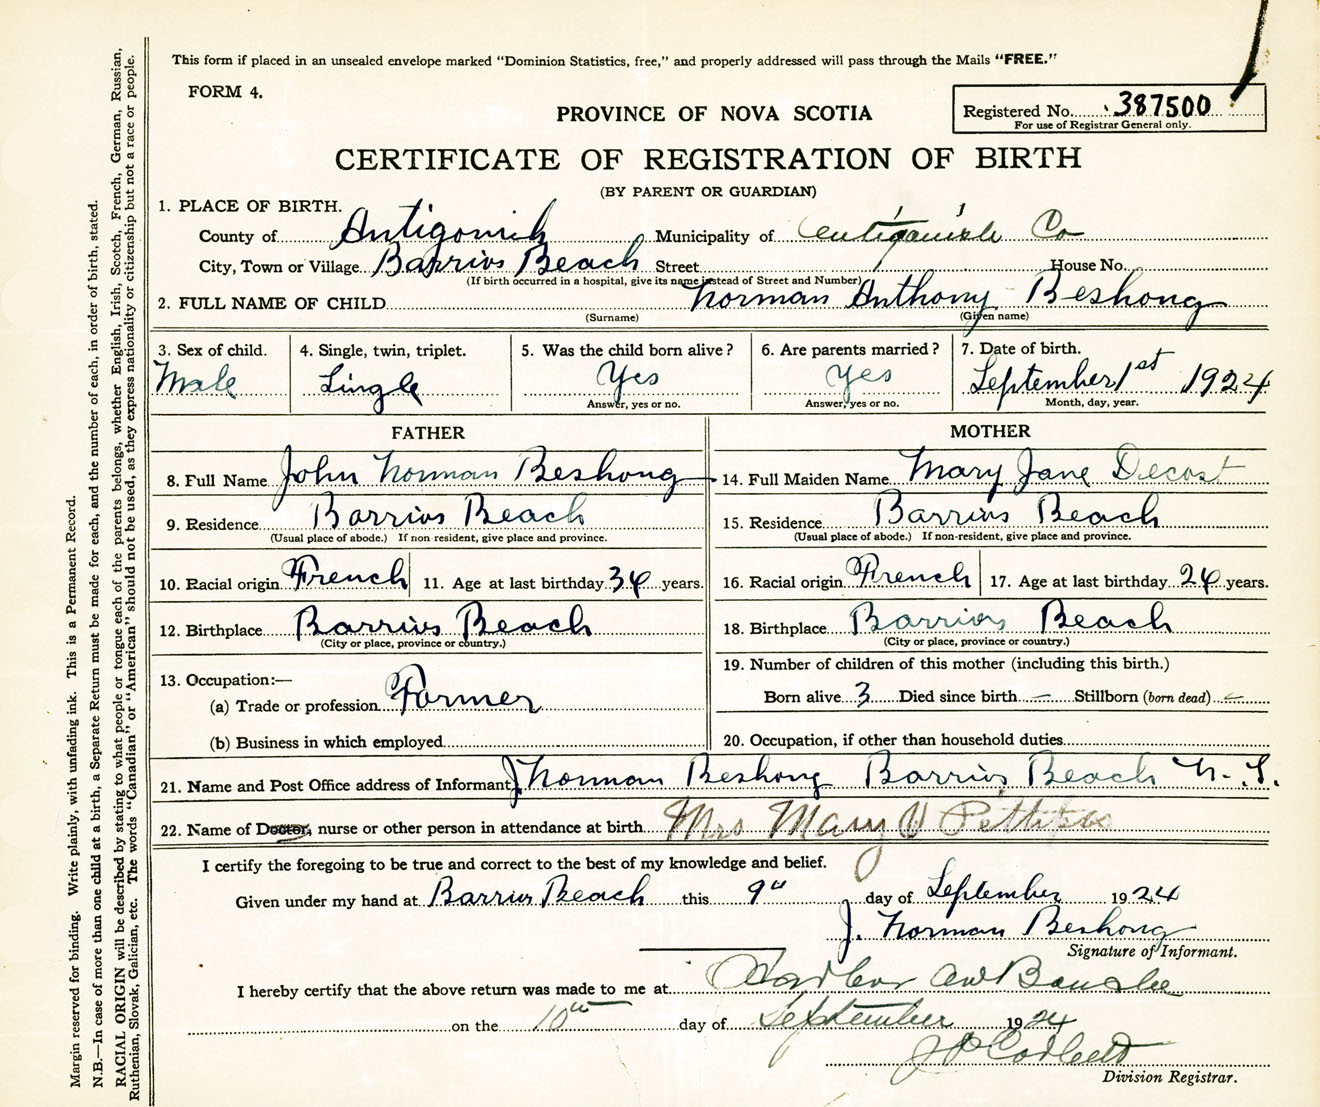 This form if placed in an unsealed envelope marked “Dominion Statistics, free,” and properly addressed will pass through the Mails “FREE.”
FORM 4.
PROVINCE OF NOVA SCOTIA
Registered No. 387500
For use of Registrar General only.
CERTIFICATE OF REGISTRATION OF BIRTH
(BY PARENT OR GUARDIAN)
1. PLACE OF BIRTH.
County of Antigonish Municipality of Antigonish Co
City, Town or Village Barrios Beach Street House No.
(If birth occurred in a hospital, give its name instead of Street and Number)
2. FULL NAME OF CHILD Norman Anthony Beshong
(Surname) (Given name)
3. Sex of child. 4. Single, twin, triplet. 5. Was the child born alive? 6. Are parents married? 7. Date of birth.
Male Single Yes Yes September 1st 1924
Answer, yes or no. Answer, yes or no. Month, day, year.
FATHER MOTHER
8. Full Name John Norman Beshong 14. Full Maiden Name Mary Jane Decost
9. Residence Barrios Beach 15. Residence Barrios Beach
(Usual place of abode.) If non-resident, give place and province. (Usual place of abode.) If non-resident, give place and province.
10. Racial origin French 11. Age at last birthday 34 years. 16. Racial origin French 17. Age at last birthday 24 years.
12. Birthplace Barrios Beach 18. Birthplace Barrios Beach
(City or place, province or country.) (City or place, province or country.)
13. Occupation:— 19. Number of children of this mother (including this birth.)
(a) Trade or profession Farmer Born alive 3 Died since birth — Stillborn (born dead) —
(b) Business in which employed 20. Occupation, if other than household duties
21. Name and Post Office address of Informant J. Norman Beshong Barrios Beach N. S.
22. Name of Doctor, nurse or other person in attendance at birth Mrs Mary V Pettipas
I certify the foregoing to be true and correct to the best of my knowledge and belief.
Given under my hand at Barrios Beach this 9th day of September 1924
J. Norman Beshong
Signature of Informant.
I hereby certify that the above return was made to me at Harbour au Bouche
on the 10th day of September 1924
J P Corbett
Division Registrar.
Margin reserved for binding. Write plainly, with unfading ink. This is a Permanent Record.
N.B.—In case of more than one child at a birth, a Separate Return must be made for each, and the number of each, in order of birth, stated.
RACIAL ORIGIN will be described by stating to what people or tongue each of the parents belongs, whether English, Irish, Scotch, French, German, Russian,
Ruthenian, Slovak, Galician, etc. The words “Canadian” or “American” should not be used, as they express nationality or citizenship but not a race or people.